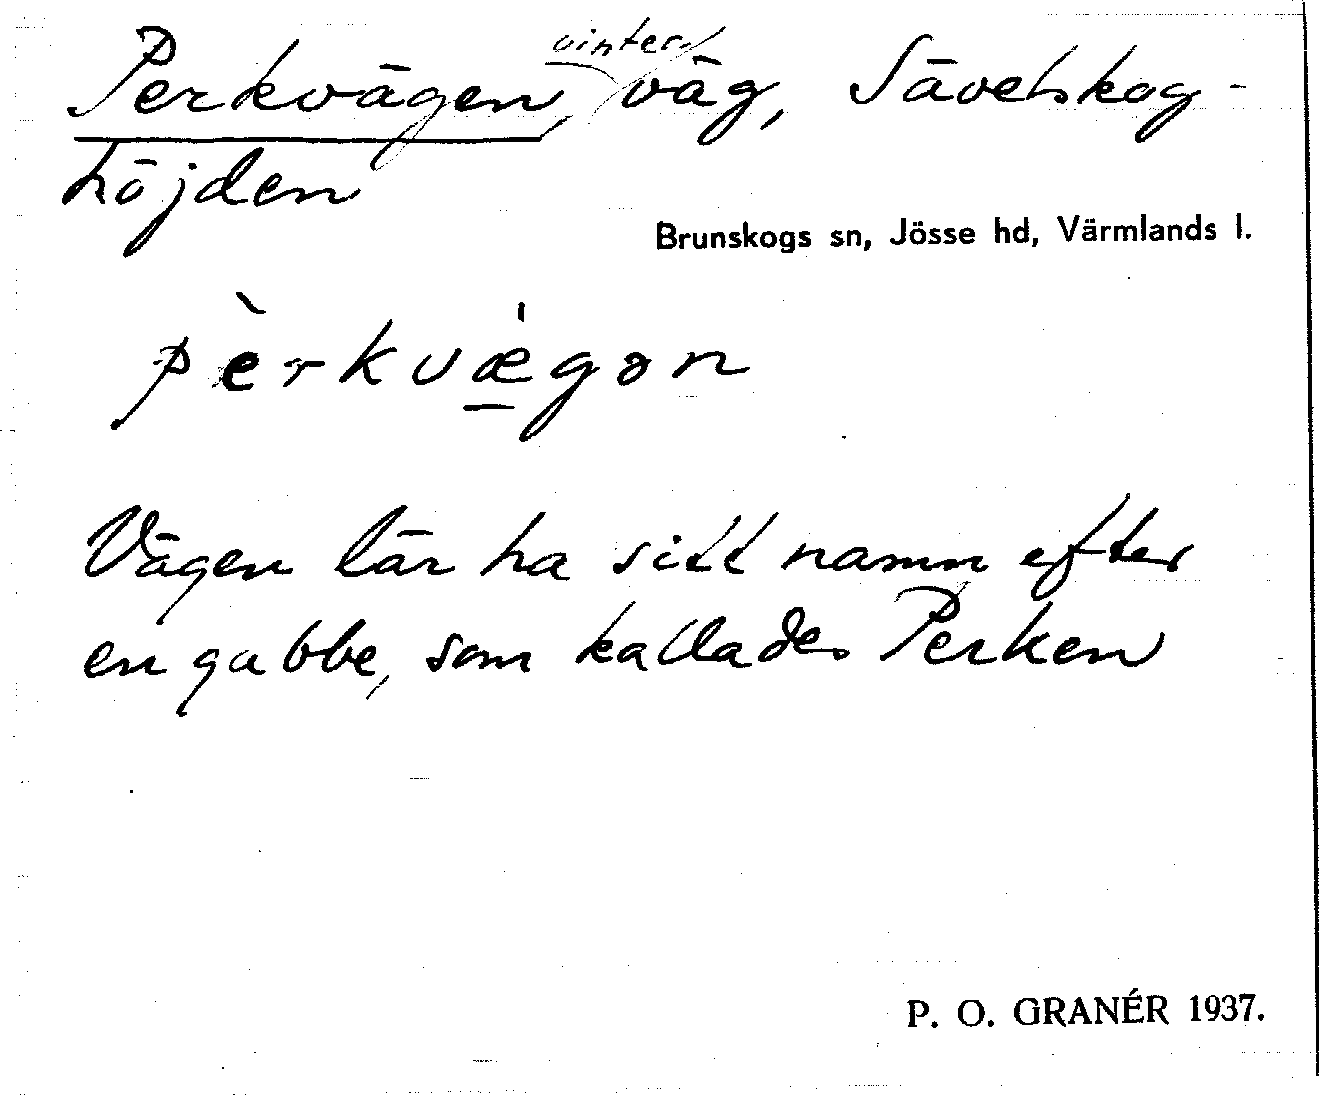 Perkvägen, vinterväg, Sävelskog-
höjden
Brunskogs sn, Jösse hd, Värmlands l.
pèrkvǽgən
Vägen lär ha sitt namn efter
en gubbe, som kallades Perken
P. O. GRANÉR 1937.